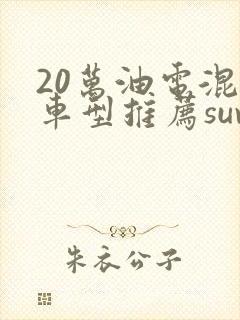 20萬油電混
車型推薦suv
朱衣公子